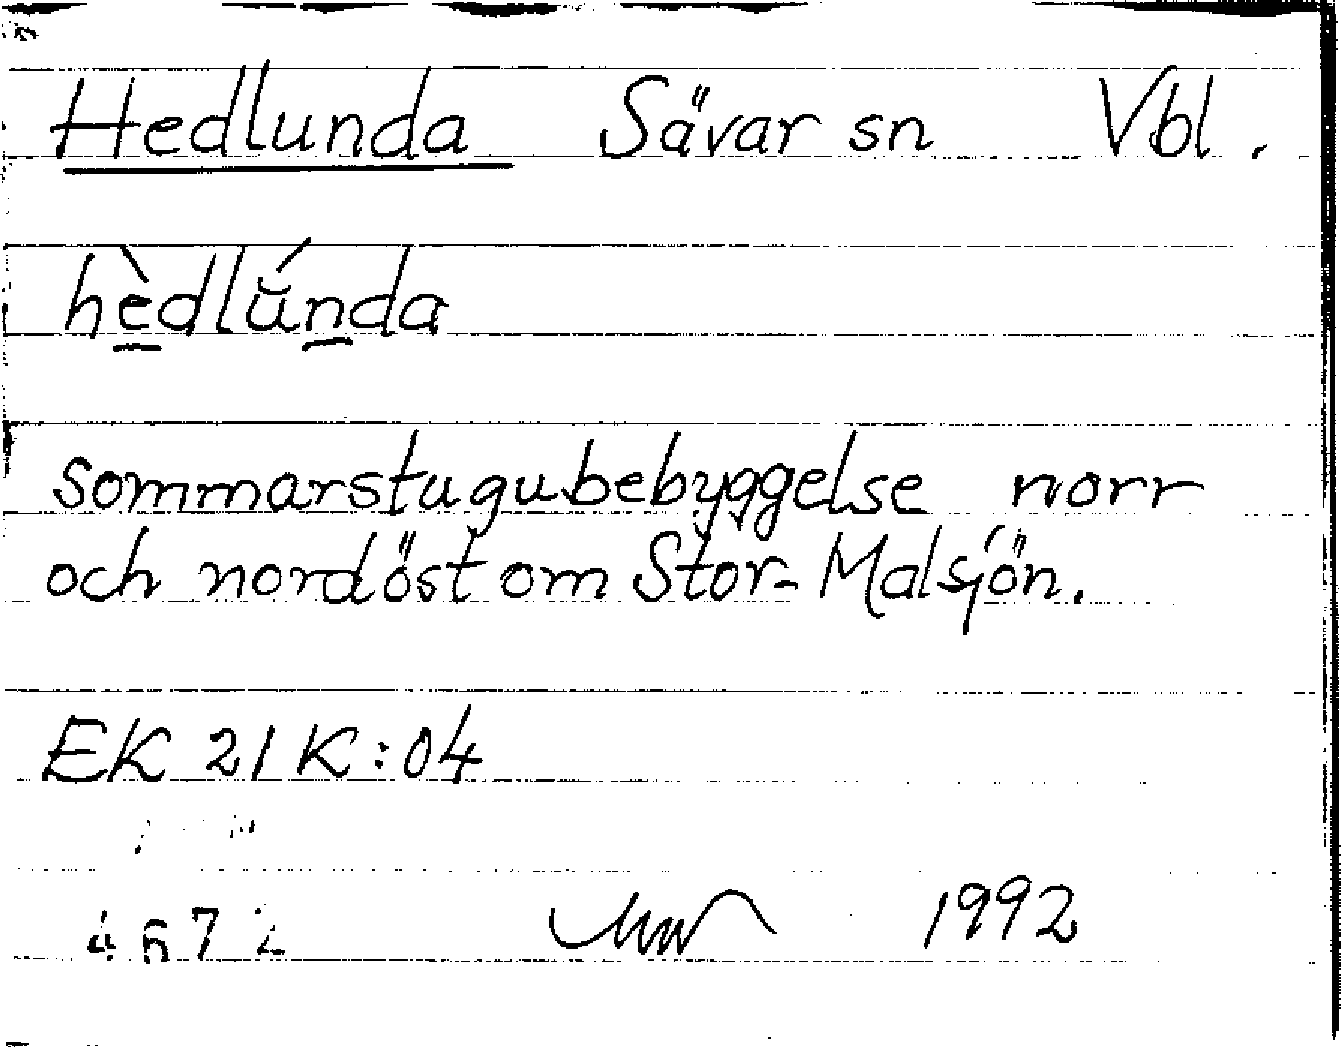 Hedlunda Sävar sn Vbl.
hèdlŭ́nda
sommarstugubebyggelse norr
och nordöst om Stor-Malsjön.
EK 21 K:04
4672 1992